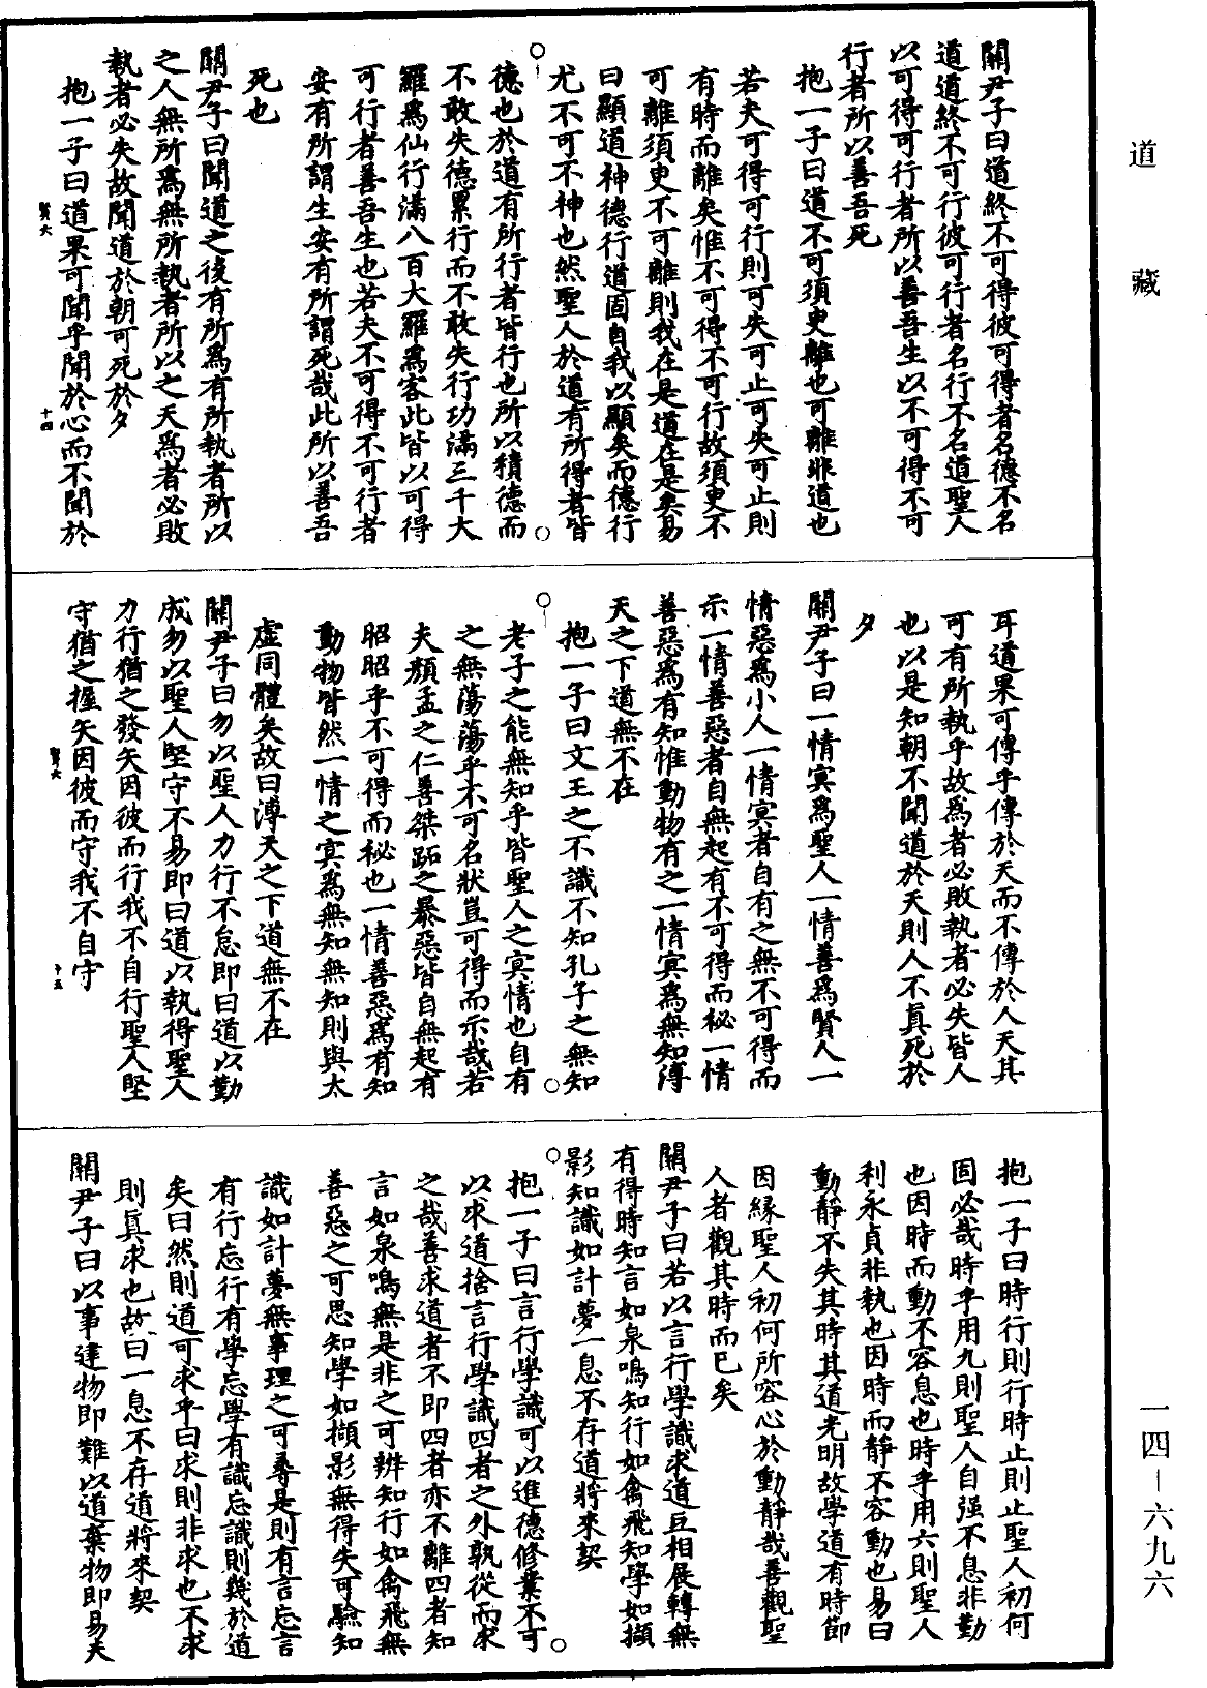 道藏
關尹子曰道終不可得彼可得者名德不名
道道終不可行彼可行者名行不名道聖人
以可得可行者所以善吾生以不可得不可
行者所以善吾死
抱一子曰道不可須臾離也可離非道也
若夫可得可行則可失可止可失可止則
有時而離矣惟不可得不可行故須臾不
可離須臾不可離則我在是道在是矣易
曰顯道神德行道固自我以顯矣而德行
尤不可不神也然聖人於道有所得者皆
德也於道有所行者皆行也所以積德而
不敢失德累行而不敢失行功滿三千大
羅爲仙行滿八百大羅爲客此皆以可得
可行者善吾生也若夫不可得不可行者
安有所謂生安有所謂死哉此所以善吾
死也
關尹子曰聞道之後有所爲有所執者所以
之人無所爲無所執者所以之天爲者必敗
執者必失故聞道於朝可死於夕
抱一子曰道果可聞乎聞於心而不聞於
賢六 十四
耳道果可傳乎傳於天而不傳於人天其
可有所執乎故爲者必敗執者必失皆人
也以是知朝不聞道於天則人不眞死於
夕
關尹子曰一情冥爲聖人一情善爲賢人一
情惡爲小人一情冥者自有之無不可得而
示一情善惡者自無起有不可得而秘一情
善惡爲有知惟動物有之一情冥爲無知溥
天之下道無不在
抱一子曰文王之不識不知孔子之無知
老子之能無知乎皆聖人之冥情也自有
之無蕩蕩乎不可名狀豈可得而示哉若
夫顏孟之仁善桀跖之暴惡皆自無起有
昭昭乎不可得而秘也一情善惡爲有知
動物皆然一情之冥爲無知無知則與太
虛同體矣故曰溥天之下道無不在
關尹子曰勿以聖人力行不怠即曰道以勤
成勿以聖人堅守不易即曰道以執得聖人
力行猶之發矢因彼而行我不自行聖人堅
守猶之握矢因彼而守我不自守
賢六 十五
抱一子曰時行則行時止則止聖人初何
固必哉時乎用九則聖人自强不息非勤
也因時而動不容息也時乎用六則聖人
利永貞非執也因時而靜不容動也易曰
動靜不失其時其道光明故學道有時節
因緣聖人初何所容心於動靜哉善觀聖
人者觀其時而已矣
關尹子曰若以言行學識求道互相展轉無
有得時知言如泉鳴知行如禽飛知學如擷
影知識如計夢一息不存道將來契
抱一子曰言行學識可以進德修業不可
以求道捨言行學識四者之外孰從而求
之哉善求道者不即四者亦不離四者知
言如泉鳴無是非之可辨知行如禽飛無
善惡之可思知學如擷影無得失可驗知
識如計夢無事理之可尋是則有言忘言
有行忘行有學忘學有識忘識則幾於道
矣曰然則道可求乎曰求則非求也不求
則眞求也故曰一息不存道將來契
關尹子曰以事建物即難以道棄物即易天
一四—六九六